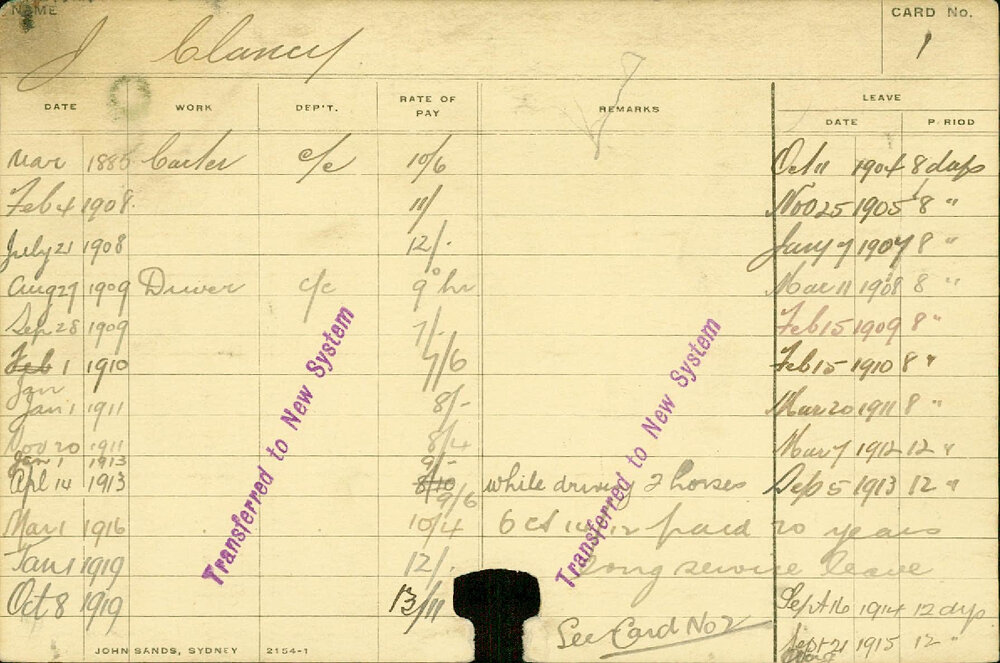 NAME
CARD No.
J Clancy
1
DATE WORK DEP'T. RATE OF PAY REMARKS LEAVE
DATE PERIOD
Mar 1885 Carter c/c 10/6 Oct 11 1904 8 days
Feb 4 1908 11/ Nov 25 1905 8 "
July 21 1908 12/- Jany 7 1907 8 "
Aug 27 1909 Driver c/c 9 hr Mar 11 1908 8 "
Sep 28 1909 7/- Feb 15 1909 8 "
Feb 1 1910 7/6 Feb 15 1910 8 "
Jan
Jan 1 1911 8/- Mar 20 1911 8 "
Nov 20 1911 8/4 Mar 7 1912 12 "
Jan 1 1913 9/-
Apl 14 1913 8/10 9/6 while driving 2 horses Sep 5 1913 12 "
Mar 1 1916 10/4 6 Oct 14/12 paid 20 years
Jan 1 1919 12/- long service leave
Oct 8 1919 13/11 Sept 16 1914 12 dys
See Card No 2 Sept 21 1915 12 "
Transferred to New System
Transferred to New System
JOHN SANDS, SYDNEY 2154-1